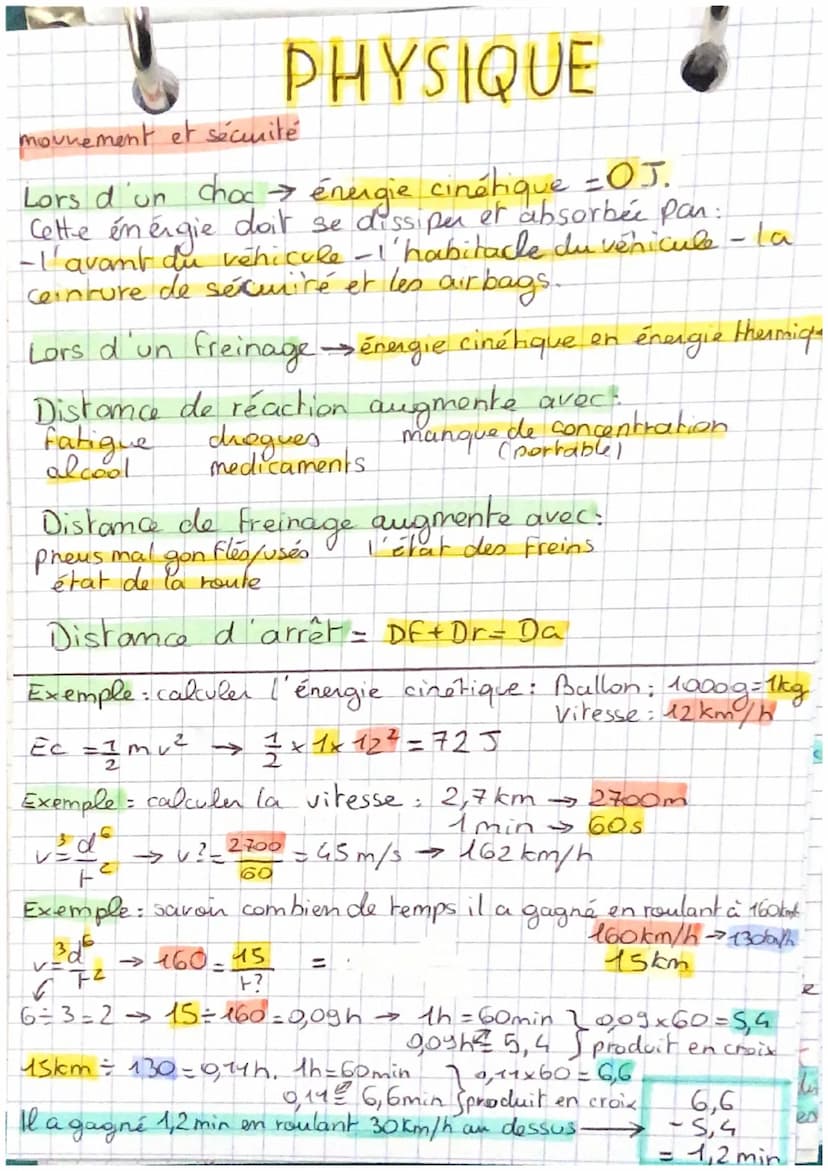 PHYSIQUE
mouvement et sécurité
Lors d'un choc → énergie cinétique = 0 J.
Cette énérgie doit se dissiper et absorbée par:
-l'avant du véhicule -l'habitacle du véhicule - la
ceinture de sécurité et les airbags.
Lors d'un freinage → énergie cinétique en énergie thermiq
Distance de réaction augmente avec:
fatigue drogues manque de concentration
alcool medicaments (portable)
Distance de freinage augmente avec:
pneus mal gonflés/usés l'état des freins
état de la route
Distance d'arrêt = DF+Dr= Da
Exemple: calculer l'énergie cinétique: Ballon: 1000g=1kg
Vitesse: 12 km/h
Ec = 1/2 m v² → 1/2 x 1 x 12² = 72 J
Exemple: calculer la vitesse: 2,7 km → 2700m
1 min → 60s
v 3 = d 6 / t 2 → v? = 2700/60 = 45 m/s → 162 km/h
Exemple: savoir combien de temps il a gagné en roulant à 160km/h
160km/h → 130km/h
v 3 = d 6 / t 2 → 160 = 15/t? = 15km
6÷3=2 → 15÷160=0,09h → 1h=60min } 0,09x60=5,4
0,09h = 5,4 } produit en croix
15km ÷ 130 = 0,11h. 1h=60min } 0,11x60=6,6
0,11 = 6,6min } produit en croix 6,6
Il a gagné 1,2 min en roulant 30km/h au dessus → - 5,4
= 1,2 min